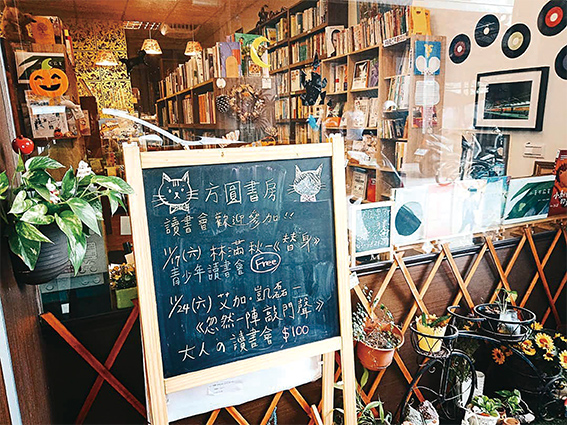 方圓書房
讀書會歡迎參加!!
11/17(六) 林滿秋—《替身》
青少年讀書會 Free
11/24(六) 艾加·凱磊—
《忽然一陣敲門聲》
大人の讀書會 $100